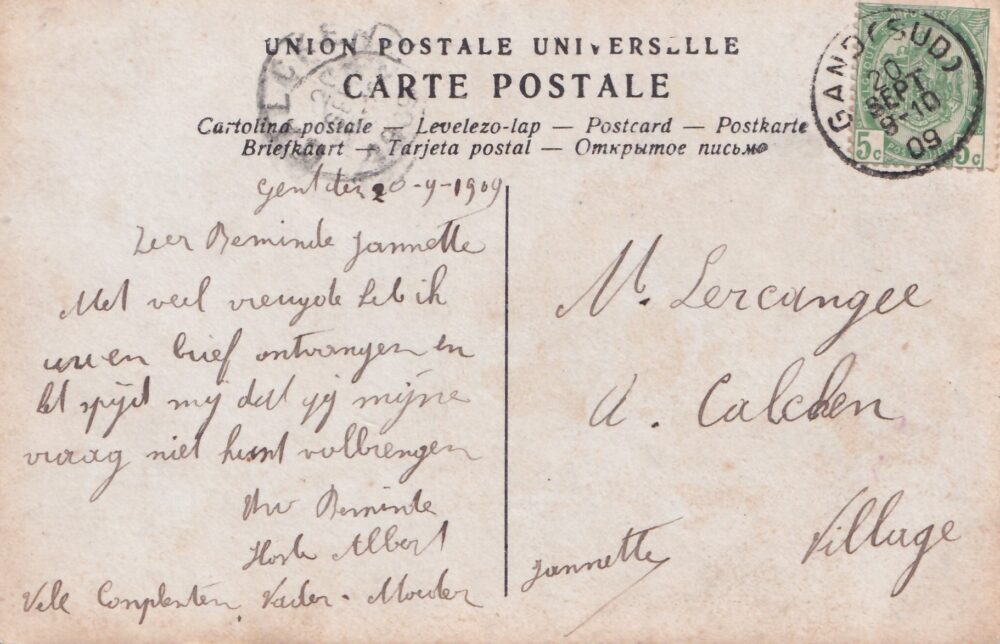 UNION POSTALE UNIVERSELLE
CARTE POSTALE
Cartolina postale — Levelezo-lap — Postcard — Postkarte
Briefkaart — Tarjeta postal — Открытое письмо
GAND (SUD)
20
SEPT
8-10
09
5c 5c
Gent den 20-9-1909
Zeer Beminde Jannette
Met veel vreugde heb ik
uwen brief ontvangen en
het spijt mij dat gij mijne
vraag niet kunt volbrengen
Uw Beminde
Albert
Vele Complenten Vader - Moeder
M. Lercangee
a. Calcken
Village
Jannette